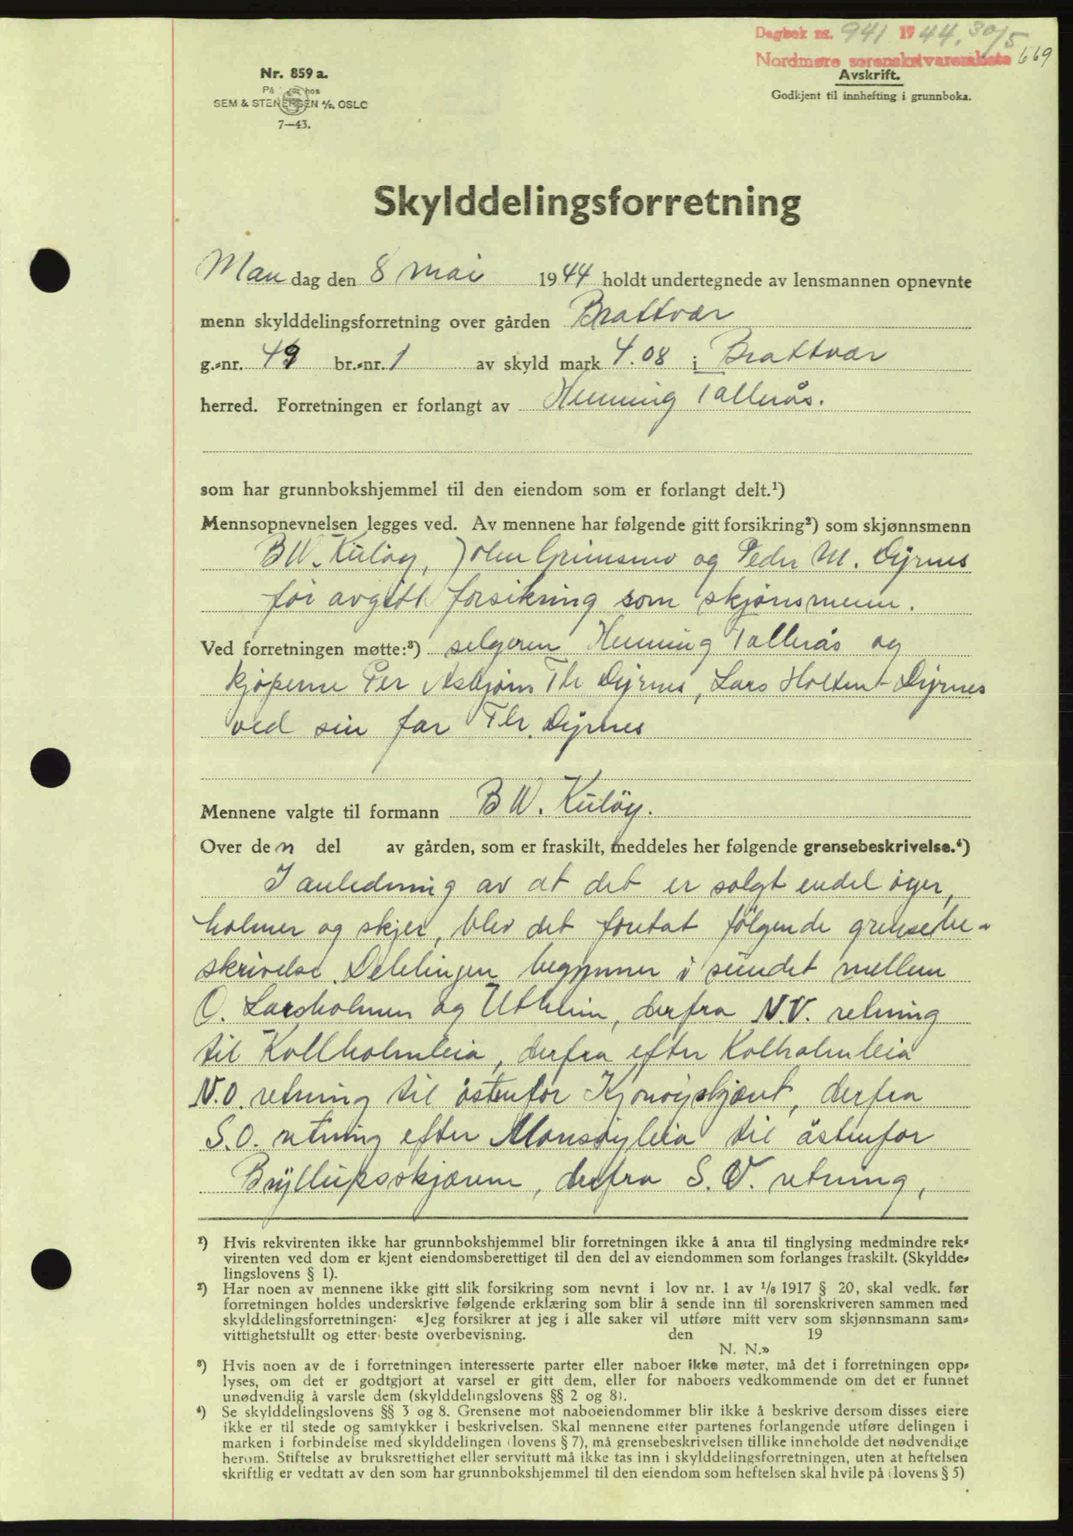 Dagbok nr. 941 1944. 30/5
Nordmøre sorenskriverembete 669
Nr. 859 a.
På hos
SEM & STENERSEN A/S. OSLO
7—43.
Avskrift.
Godkjent til innhefting i grunnboka.
Skylddelingsforretning
Man dag den 8 mai 1944 holdt undertegnede av lensmannen opnevnte
menn skylddelingsforretning over gården Brattvær
g.-nr. 49 br.-nr. 1 av skyld mark 4.08 i Brattvær
herred. Forretningen er forlangt av Henning Tallerås.
som har grunnbokshjemmel til den eiendom som er forlangt delt.¹)
Mennsopnevnelsen legges ved. Av mennene har følgende gitt forsikring²) som skjønnsmenn
B W. Kuløy, John Grimsmo og Peder M. Dyrnes
før avgitt forsikring som skjønsmenn.
Ved forretningen møtte:³) selgeren Henning Tallerås og
kjøperne Per Asbjørn Th Dyrnes, Lars Holten Dyrnes
ved sin far Th. Dyrnes
Mennene valgte til formann B W. Kuløy.
Over den del av gården, som er fraskilt, meddeles her følgende grensebeskrivelse.⁴)
I anledning av at det er solgt endel øyer,
holmer og skjer, blev det foretat følgende grensebe-
skrivelse. Delelinjen begynner i sundet mellem
O. Larsholmen og Utheim, derfra N.V. retning
til Kollholmleia, derfra efter Kolholmleia
N.O. retning til östenfor Kjonøyskjæret, derfra
S.O. retning efter Monsøyleia til östenfor
Bryllupsskjærene, derfra S.V. retning,
¹) Hvis rekvirenten ikke har grunnbokshjemmel blir forretningen ikke å anta til tinglysing medmindre rek-
virenten ved dom er kjent eiendomsberettiget til den del av eiendommen som forlanges fraskilt. (Skyldde-
lingslovens § 1).
²) Har noen av mennene ikke gitt slik forsikring som nevnt i lov nr. 1 av 1/8 1917 § 20, skal vedk. før
forretningen holdes underskrive følgende erklæring som blir å sende inn til sorenskriveren sammen med
skylddelingsforretningen: «Jeg forsikrer at jeg i alle saker vil utføre mitt verv som skjønnsmann sam-
vittighetsfullt og etter beste overbevisning. den 19
N. N.»
³) Hvis noen av de i forretningen interesserte parter eller naboer ikke møter, må det i forretningen opp-
lyses, om det er godtgjort at varsel er gitt dem, eller for naboers vedkommende om det er funnet
unødvendig å varsle dem (skylddelingslovens §§ 2 og 8).
⁴) Se skylddelingslovens §§ 3 og 8. Grensene mot naboeiendommer blir ikke å beskrive dersom disses eiere
ikke er til stede og samtykker i beskrivelsen. Skal mennene etter partenes forlangende utføre delingen i
marken i forbindelse med skylddelingen (lovens § 7), må grensebeskrivelsen tillike inneholde det nødvendige
herom. Stiftelse av bruksrettighet eller servitutt må ikke tas inn i skylddelingsforretningen, uten at heftelsen
skriftlig er vedtatt av den som har grunnbokshjemmel til den eiendom som heftelsen skal hvile på (lovens § 5)